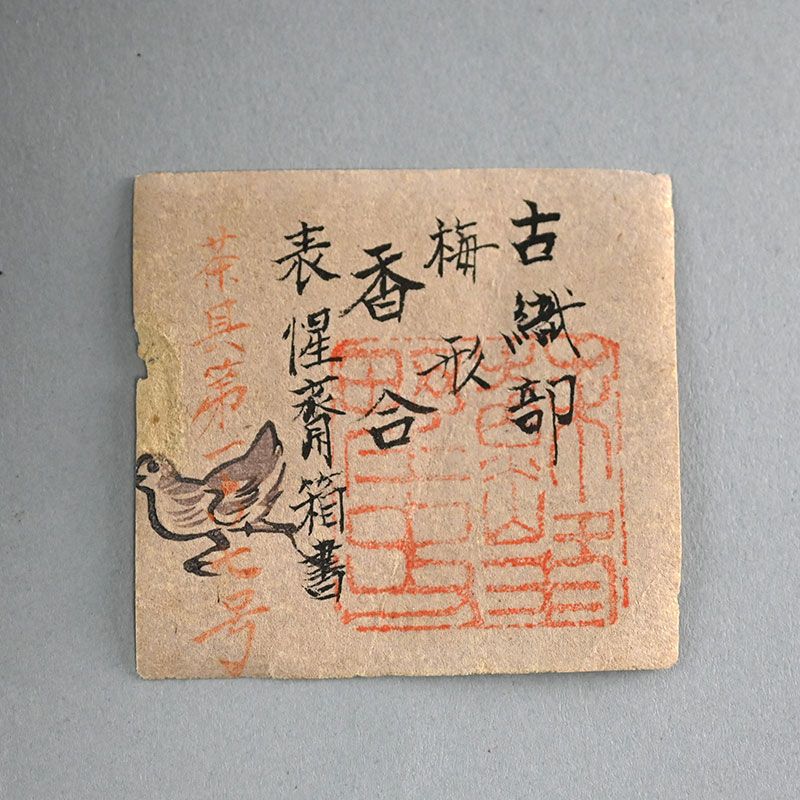 古織部
梅形
香合
表惺斎箱書
茶具第
号